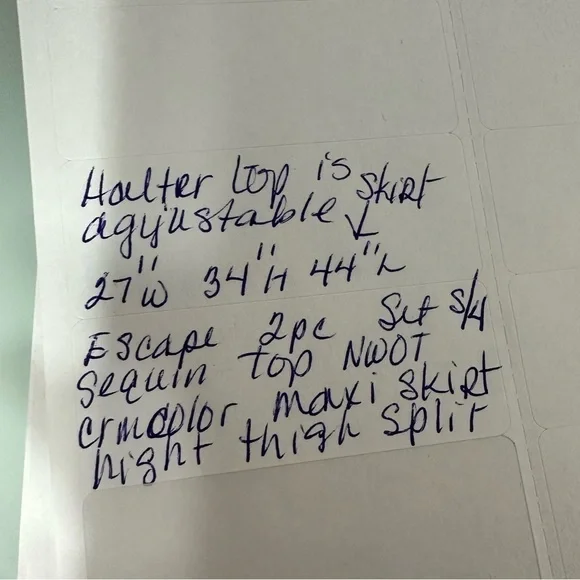 Halter top is skirt
agyustable ↓
27"W 34"H 44"L
Escape 2pc Set S/4
Sequin top NWOT
crmcolor maxi skirt
hight thigh split